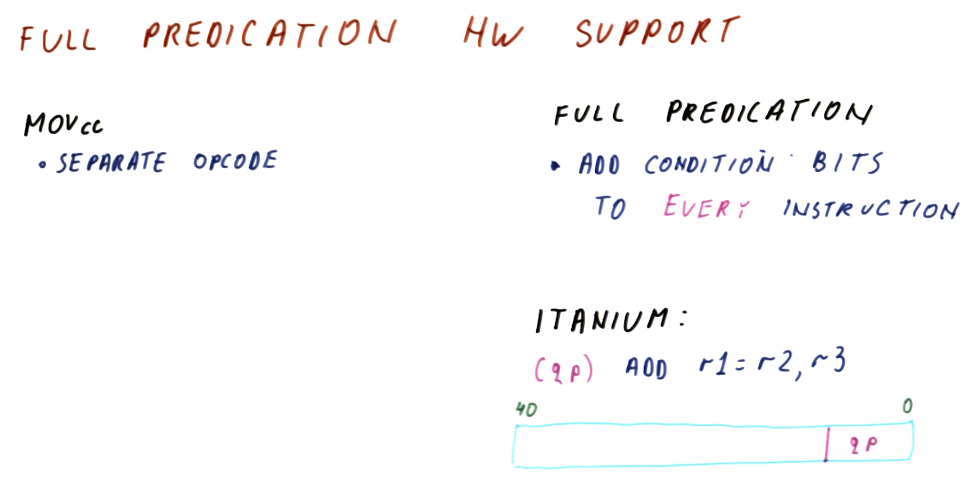 FULL PREDICATION HW SUPPORT
MOVcc
• SEPARATE OPCODE
FULL PREDICATION
• ADD CONDITION BITS
TO EVERY INSTRUCTION
ITANIUM:
(qp) ADD r1=r2,r3
40 0
qp